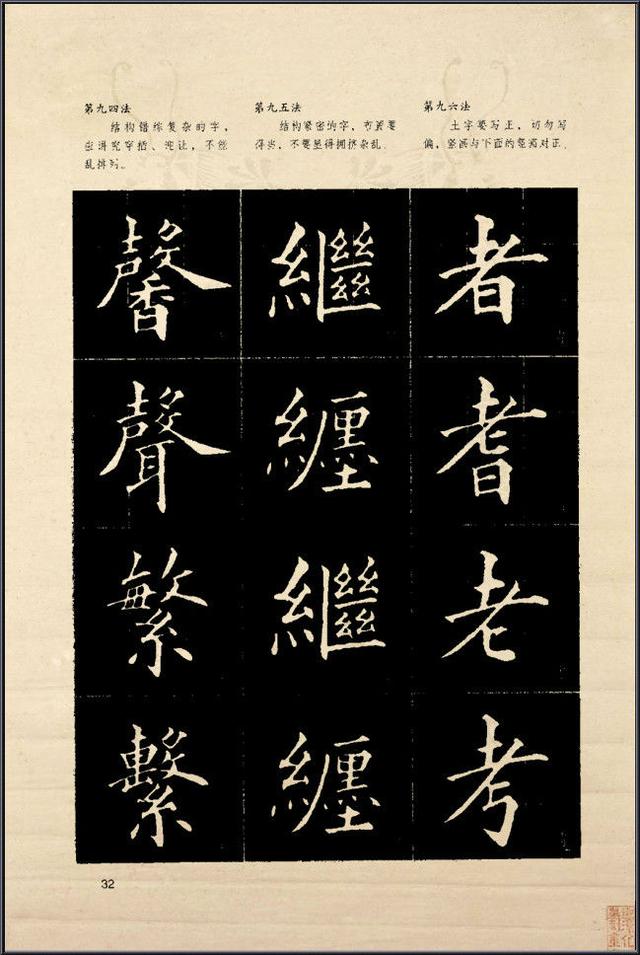 第九四法
结构错综复杂的字，
应讲究穿插、让，不能
乱排列。
第九五法
结构紧密的字，布置要
得当，不要显得拥挤杂乱。
第九六法
土字要写正，切勿写
偏，竖画与下面的竖画对正。
馨
聲
繁
繫
繼
纏
繼
纏
者
耆
老
考
32